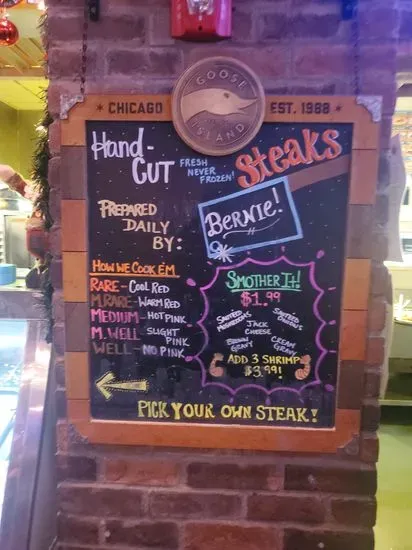 GOOSE
ISLAND
CHICAGO EST. 1988
Hand-
CUT
FRESH
NEVER
FROZEN!
Steaks
PREPARED
DAILY
BY:
BERNIE!
HOW WE COOK EM
RARE - COOL RED
M.RARE - WARM RED
MEDIUM - HOT PINK
M. WELL - SLIGHT
PINK
WELL - NO PINK
SMOTHER IT!
$1.99
SAUTÉED
MUSHROOMS
SAUTÉED
ONIONS
JACK
CHEESE
BROWN
GRAVY
CREAM
GRAVY
ADD 3 SHRIMP
$3.99!
PICK YOUR OWN STEAK!